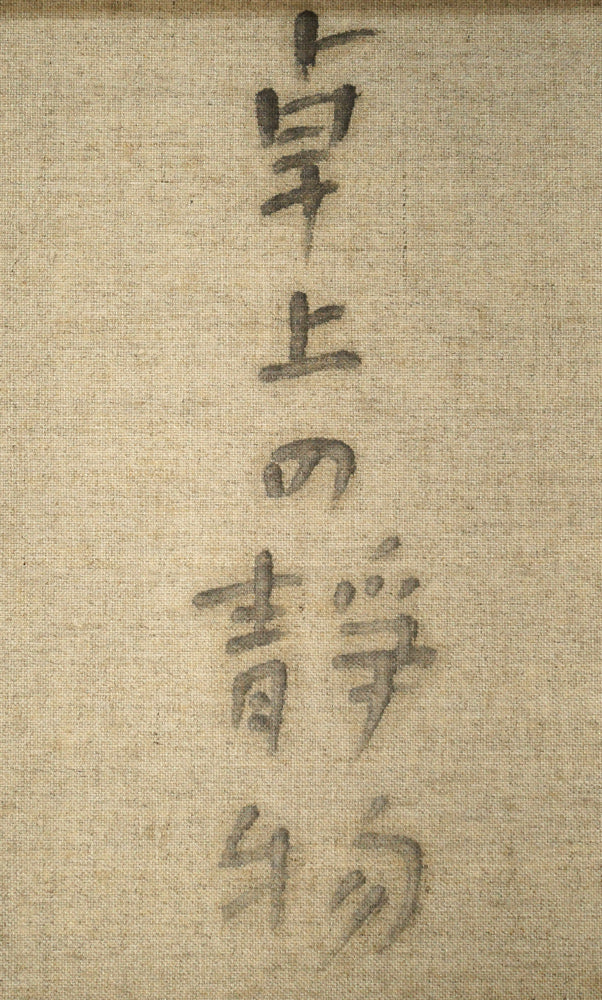 卓上の靜物